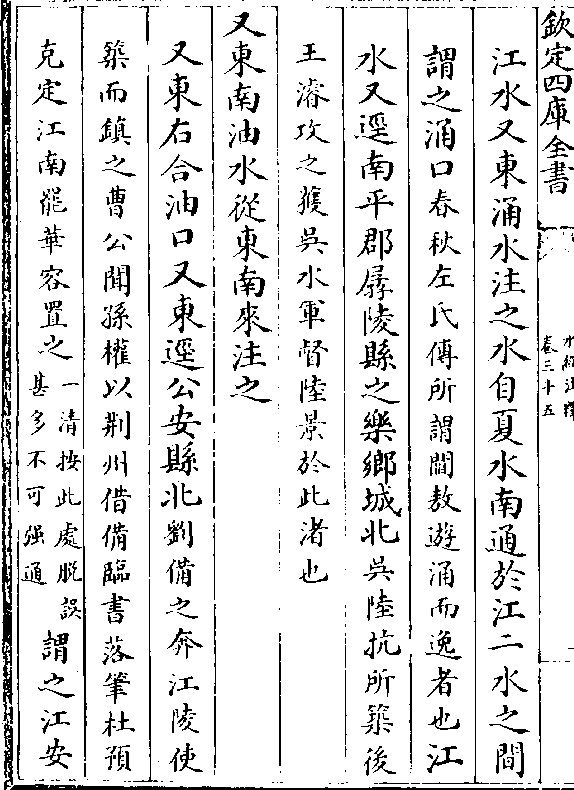 欽定四庫全書
水經注釋
卷三十五
江水又東涌水注之水自夏水南通於江二水之間
謂之涌口春秋左氏傳所謂閻敖遊涌而逸者也江
水又逕南平郡孱陵縣之樂鄉城北吳陸抗所築後
王濬攻之獲吳水軍督陸景於此渚也
又東南油水從東南來注之
又東右合油口又東逕公安縣北劉備之奔江陵使
築而鎮之曹公聞孫權以荆州借備臨書落筆杜預
克定江南罷華容置之一清按此處脫誤甚多不可强通謂之江安